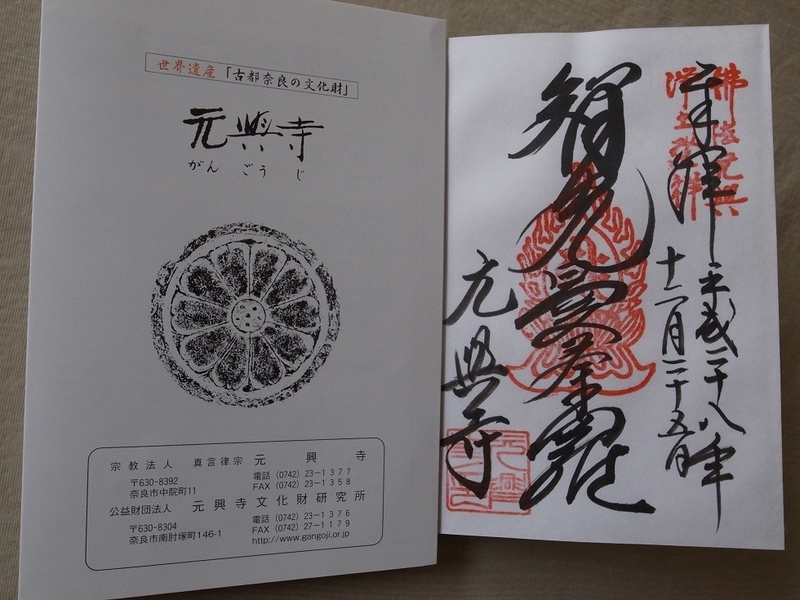 世界遺産「古都奈良の文化財」
元興寺
がんごうじ
宗教法人 真言律宗 元興寺
〒630-8392
奈良市中院町11
電話 (0742) 23-1377
FAX (0742) 23-1358
公益財団法人 元興寺文化財研究所
〒630-8304
奈良市南肘塚町146-1
電話 (0742) 23-1376
FAX (0742) 27-1179
http://www.gangoji.or.jp
奉拝 平成二十八年
十二月二十五日
佛法元興
浄土発祥
智光曼荼羅
元興寺